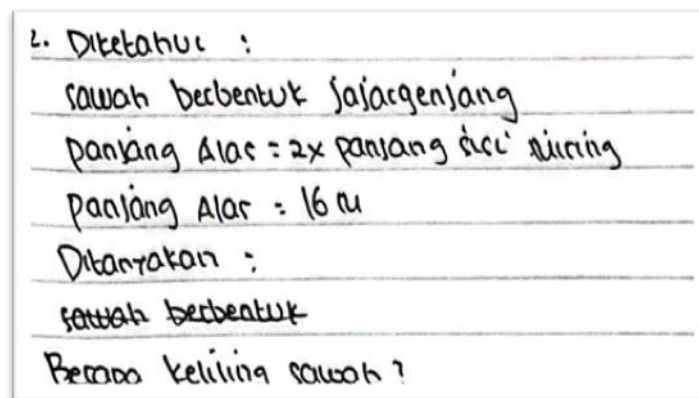 2. Diketahui :
sawah berbentuk jajargenjang
panjang Alas = 2x panjang sisi miring
panjang Alas = 16 m
Ditanyakan :
sawah berbentuk
Berapa keliling sawah ?